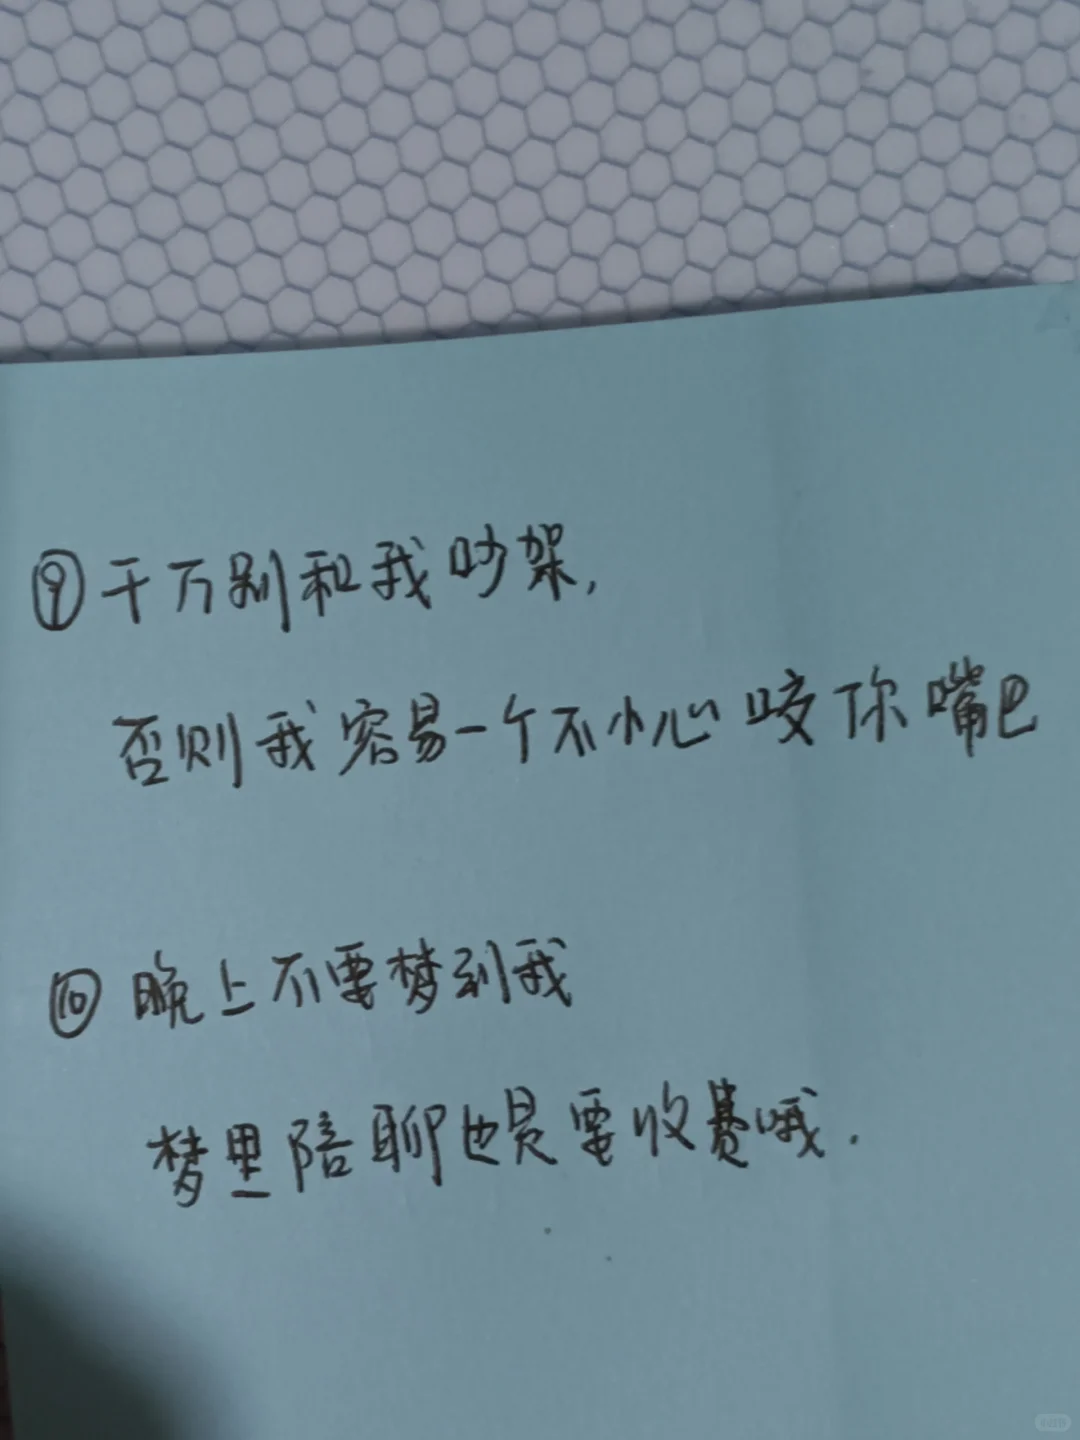 ⑨千万别和我吵架,
否则我容易一个不小心咬你嘴巴
⑩晚上不要梦到我
梦里陪聊也是需收费哦.